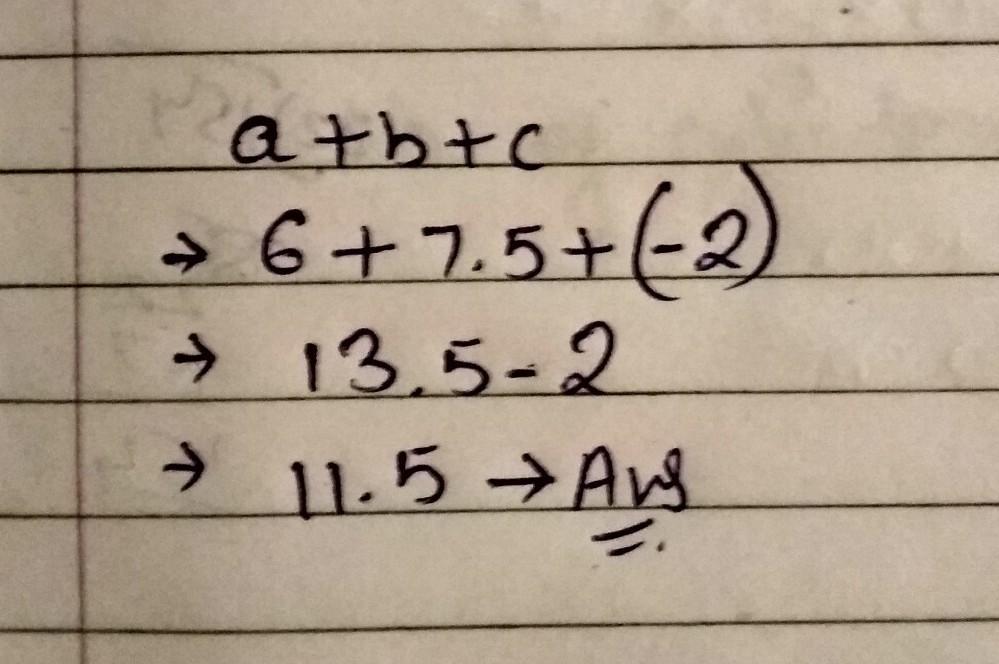 a+b+c
→ 6+7.5+(-2)
→ 13.5-2
→ 11.5 → Ans